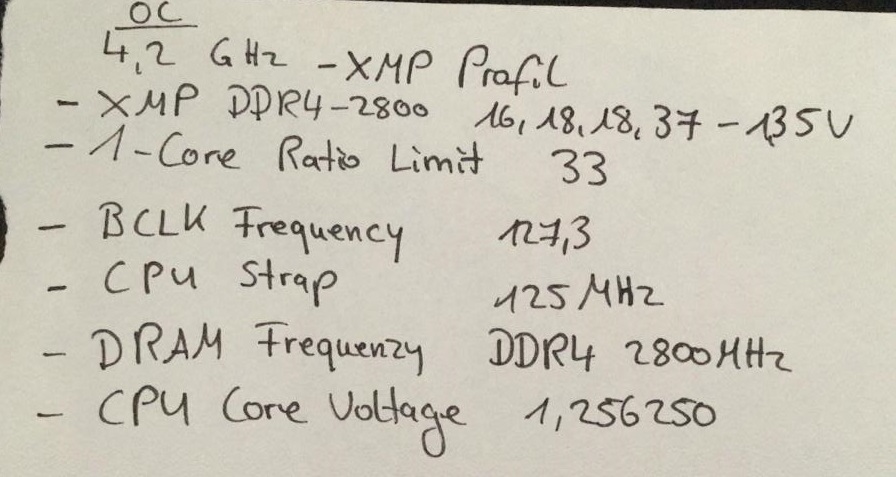 OC
4,2 GHz - XMP Profil
- XMP DDR4-2800 16, 18, 18, 37 - 1,35V
- 1-Core Ratio Limit 33
- BCLK Frequency 127,3
- CPU Strap 125 MHz
- DRAM Frequenzy DDR4 2800MHz
- CPU Core Voltage 1,256250